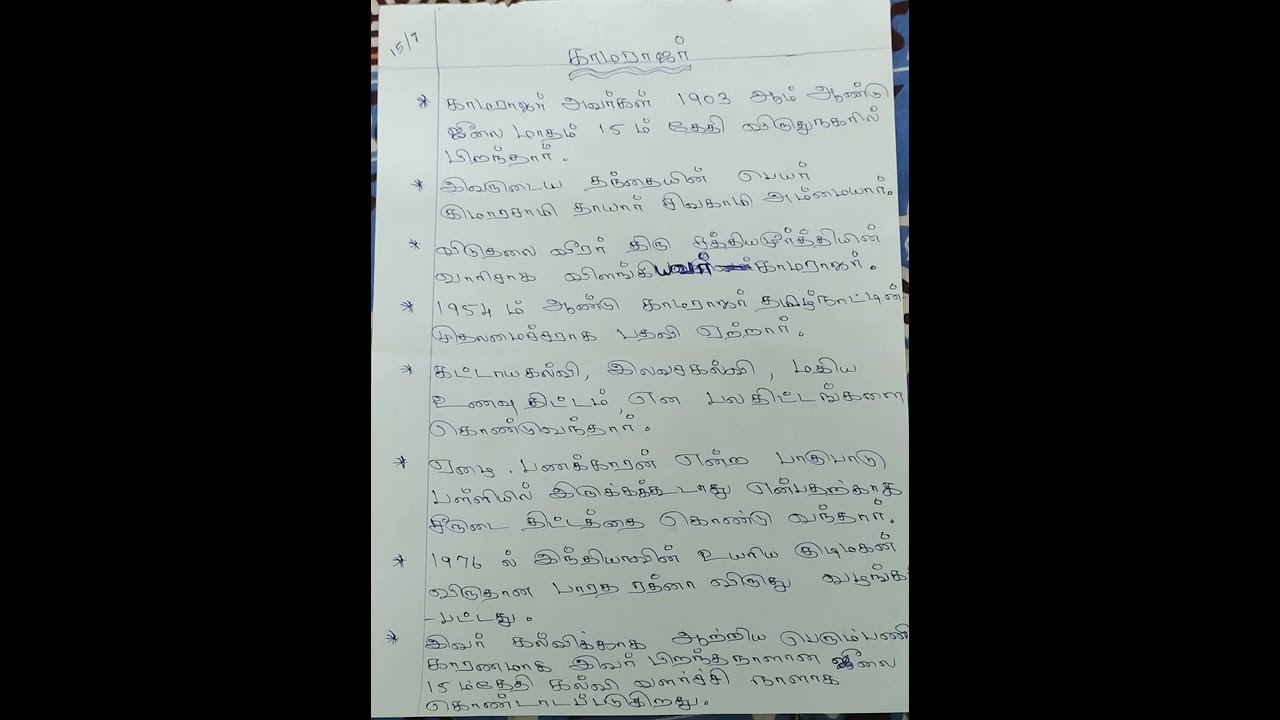 15/7
காமராஜர்
* காமராஜர் அவர்கள் 1903 ஆம் ஆண்டு
ஜீலை மாதம் 15 ம் தேதி விருதுநகரில்
பிறந்தார்.
* இவருடைய தந்தையின் பெயர்
குமாரசாமி தாயார் சிவகாமி அம்மையார்.
* விடுதலை வீரர் திரு சத்தியமூர்த்தியின்
வாரிசாக விளங்கியவர் காமராஜர்.
* 1954 ம் ஆண்டு காமராஜர் தமிழ்நாட்டின்
முதலமைச்சராக பதவி ஏற்றார்.
* கட்டாயகல்வி, இலவசகல்வி, மதிய
உணவு திட்டம், என பலதிட்டங்களை
கொண்டுவந்தார்.
* ஏழை. பணக்காரன் என்ற பாகுபாடு
பள்ளியில் இருக்கக்கூடாது என்பதற்காக
சீருடை திட்டத்தை கொண்டு வந்தார்.
* 1976 ல் இந்தியாவின் உயரிய குடிமகன்
விருதான பாரத ரத்னா விருது வழங்கப்
-பட்டது.
* இவர் கல்விக்காக ஆற்றிய பெரும்பணி
காரணமாக இவர் பிறந்தநாளான ஜீலை
15 ம்தேதி கல்வி வளர்ச்சி நாளாக
கொண்டாடப்படுகிறது.